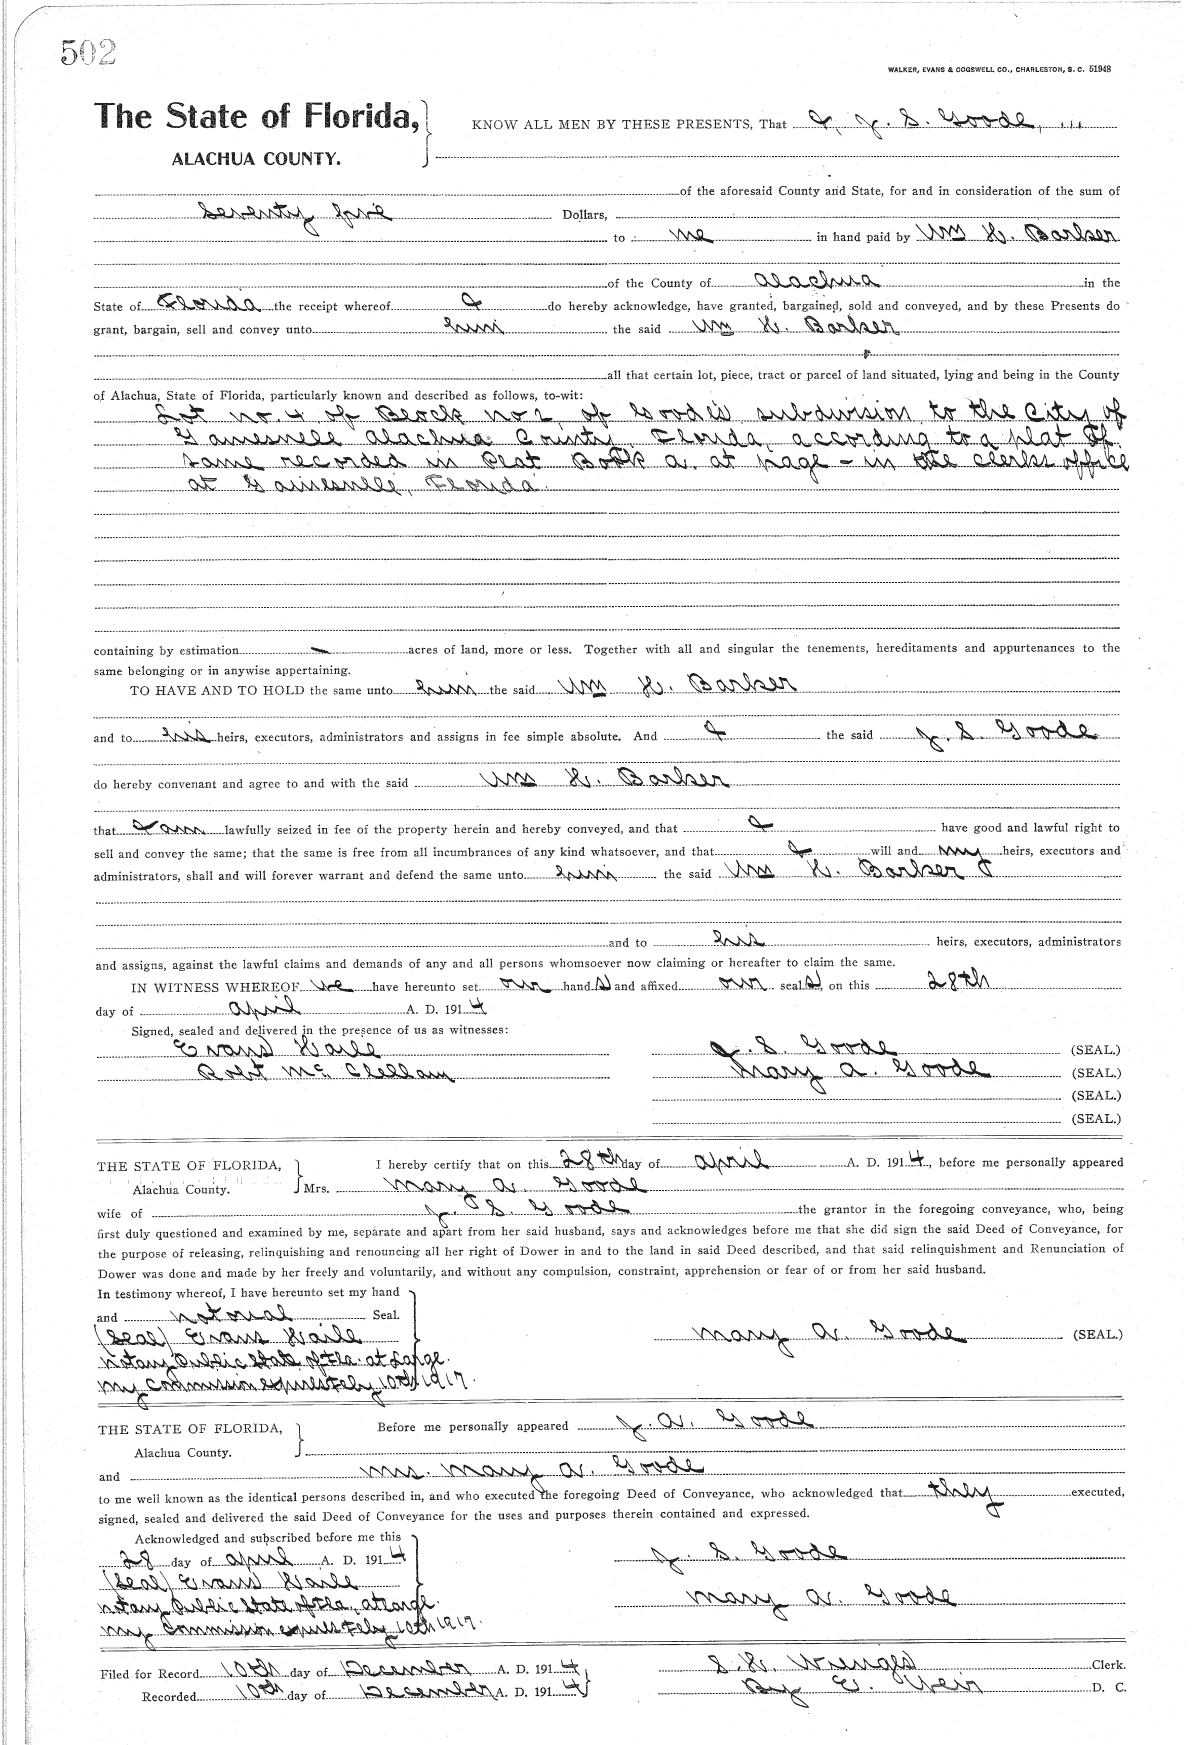 502
WALKER, EVANS & COGSWELL CO., CHARLESTON, S. C. 51948
The State of Florida,
KNOW ALL MEN BY THESE PRESENTS, That I, J. S. Goode,
ALACHUA COUNTY.
of the aforesaid County and State, for and in consideration of the sum of
Seventy five Dollars,
to me in hand paid by Wm H. Barker
of the County of Alachua in the
State of Florida the receipt whereof I do hereby acknowledge, have granted, bargained, sold and conveyed, and by these Presents do
grant, bargain, sell and convey unto him the said Wm H. Barker
all that certain lot, piece, tract or parcel of land situated, lying and being in the County
of Alachua, State of Florida, particularly known and described as follows, to-wit:
Lot no. 4 of Block no 2 of Goode's subdivision to the City of
Gainesville Alachua County, Florida, according to a plat of
same recorded in Plat Book A. at page – in the clerks office
at Gainesville, Florida.
containing by estimation – acres of land, more or less. Together with all and singular the tenements, hereditaments and appurtenances to the
same belonging or in anywise appertaining.
TO HAVE AND TO HOLD the same unto him the said Wm H. Barker
and to his heirs, executors, administrators and assigns in fee simple absolute. And I the said J. S. Goode
do hereby convenant and agree to and with the said Wm H. Barker
that I am lawfully seized in fee of the property herein and hereby conveyed, and that I have good and lawful right to
sell and convey the same; that the same is free from all incumbrances of any kind whatsoever, and that I will and my heirs, executors and
administrators, shall and will forever warrant and defend the same unto him the said Wm H. Barker
and to his heirs, executors, administrators
and assigns, against the lawful claims and demands of any and all persons whomsoever now claiming or hereafter to claim the same.
IN WITNESS WHEREOF we have hereunto set our hands and affixed our seals, on this 28th
day of April A. D. 1914
Signed, sealed and delivered in the presence of us as witnesses:
Evans Haile J. S. Goode (SEAL.)
Robt McClellan Mary A. Goode (SEAL.)
(SEAL.)
(SEAL.)
THE STATE OF FLORIDA, I hereby certify that on this 28th day of April A. D. 1914, before me personally appeared
Alachua County. Mrs. Mary A. Goode
wife of J. S. Goode the grantor in the foregoing conveyance, who, being
first duly questioned and examined by me, separate and apart from her said husband, says and acknowledges before me that she did sign the said Deed of Conveyance, for
the purpose of releasing, relinquishing and renouncing all her right of Dower in and to the land in said Deed described, and that said relinquishment and Renunciation of
Dower was done and made by her freely and voluntarily, and without any compulsion, constraint, apprehension or fear of or from her said husband.
In testimony whereof, I have hereunto set my hand
and notorial Seal.
(Seal) Evans Haile Mary A. Goode (SEAL.)
Notary Public State of Fla. at Large.
My Commission expires Feby 10th 1917.
THE STATE OF FLORIDA, Before me personally appeared J. A. Goode
Alachua County.
and Mrs. Mary A. Goode
to me well known as the identical persons described in, and who executed the foregoing Deed of Conveyance, who acknowledged that they executed,
signed, sealed and delivered the said Deed of Conveyance for the uses and purposes therein contained and expressed.
Acknowledged and subscribed before me this
28 day of April A. D. 1914 J. S. Goode
(Seal) Evans Haile
Notary Public State of Fla., at Large. Mary A. Goode
My Commission expires Feby 10th 1917.
Filed for Record 10th day of December A. D. 1914 S. H. Wienges Clerk.
Recorded 10th day of December A. D. 1914 By E. Weir D. C.